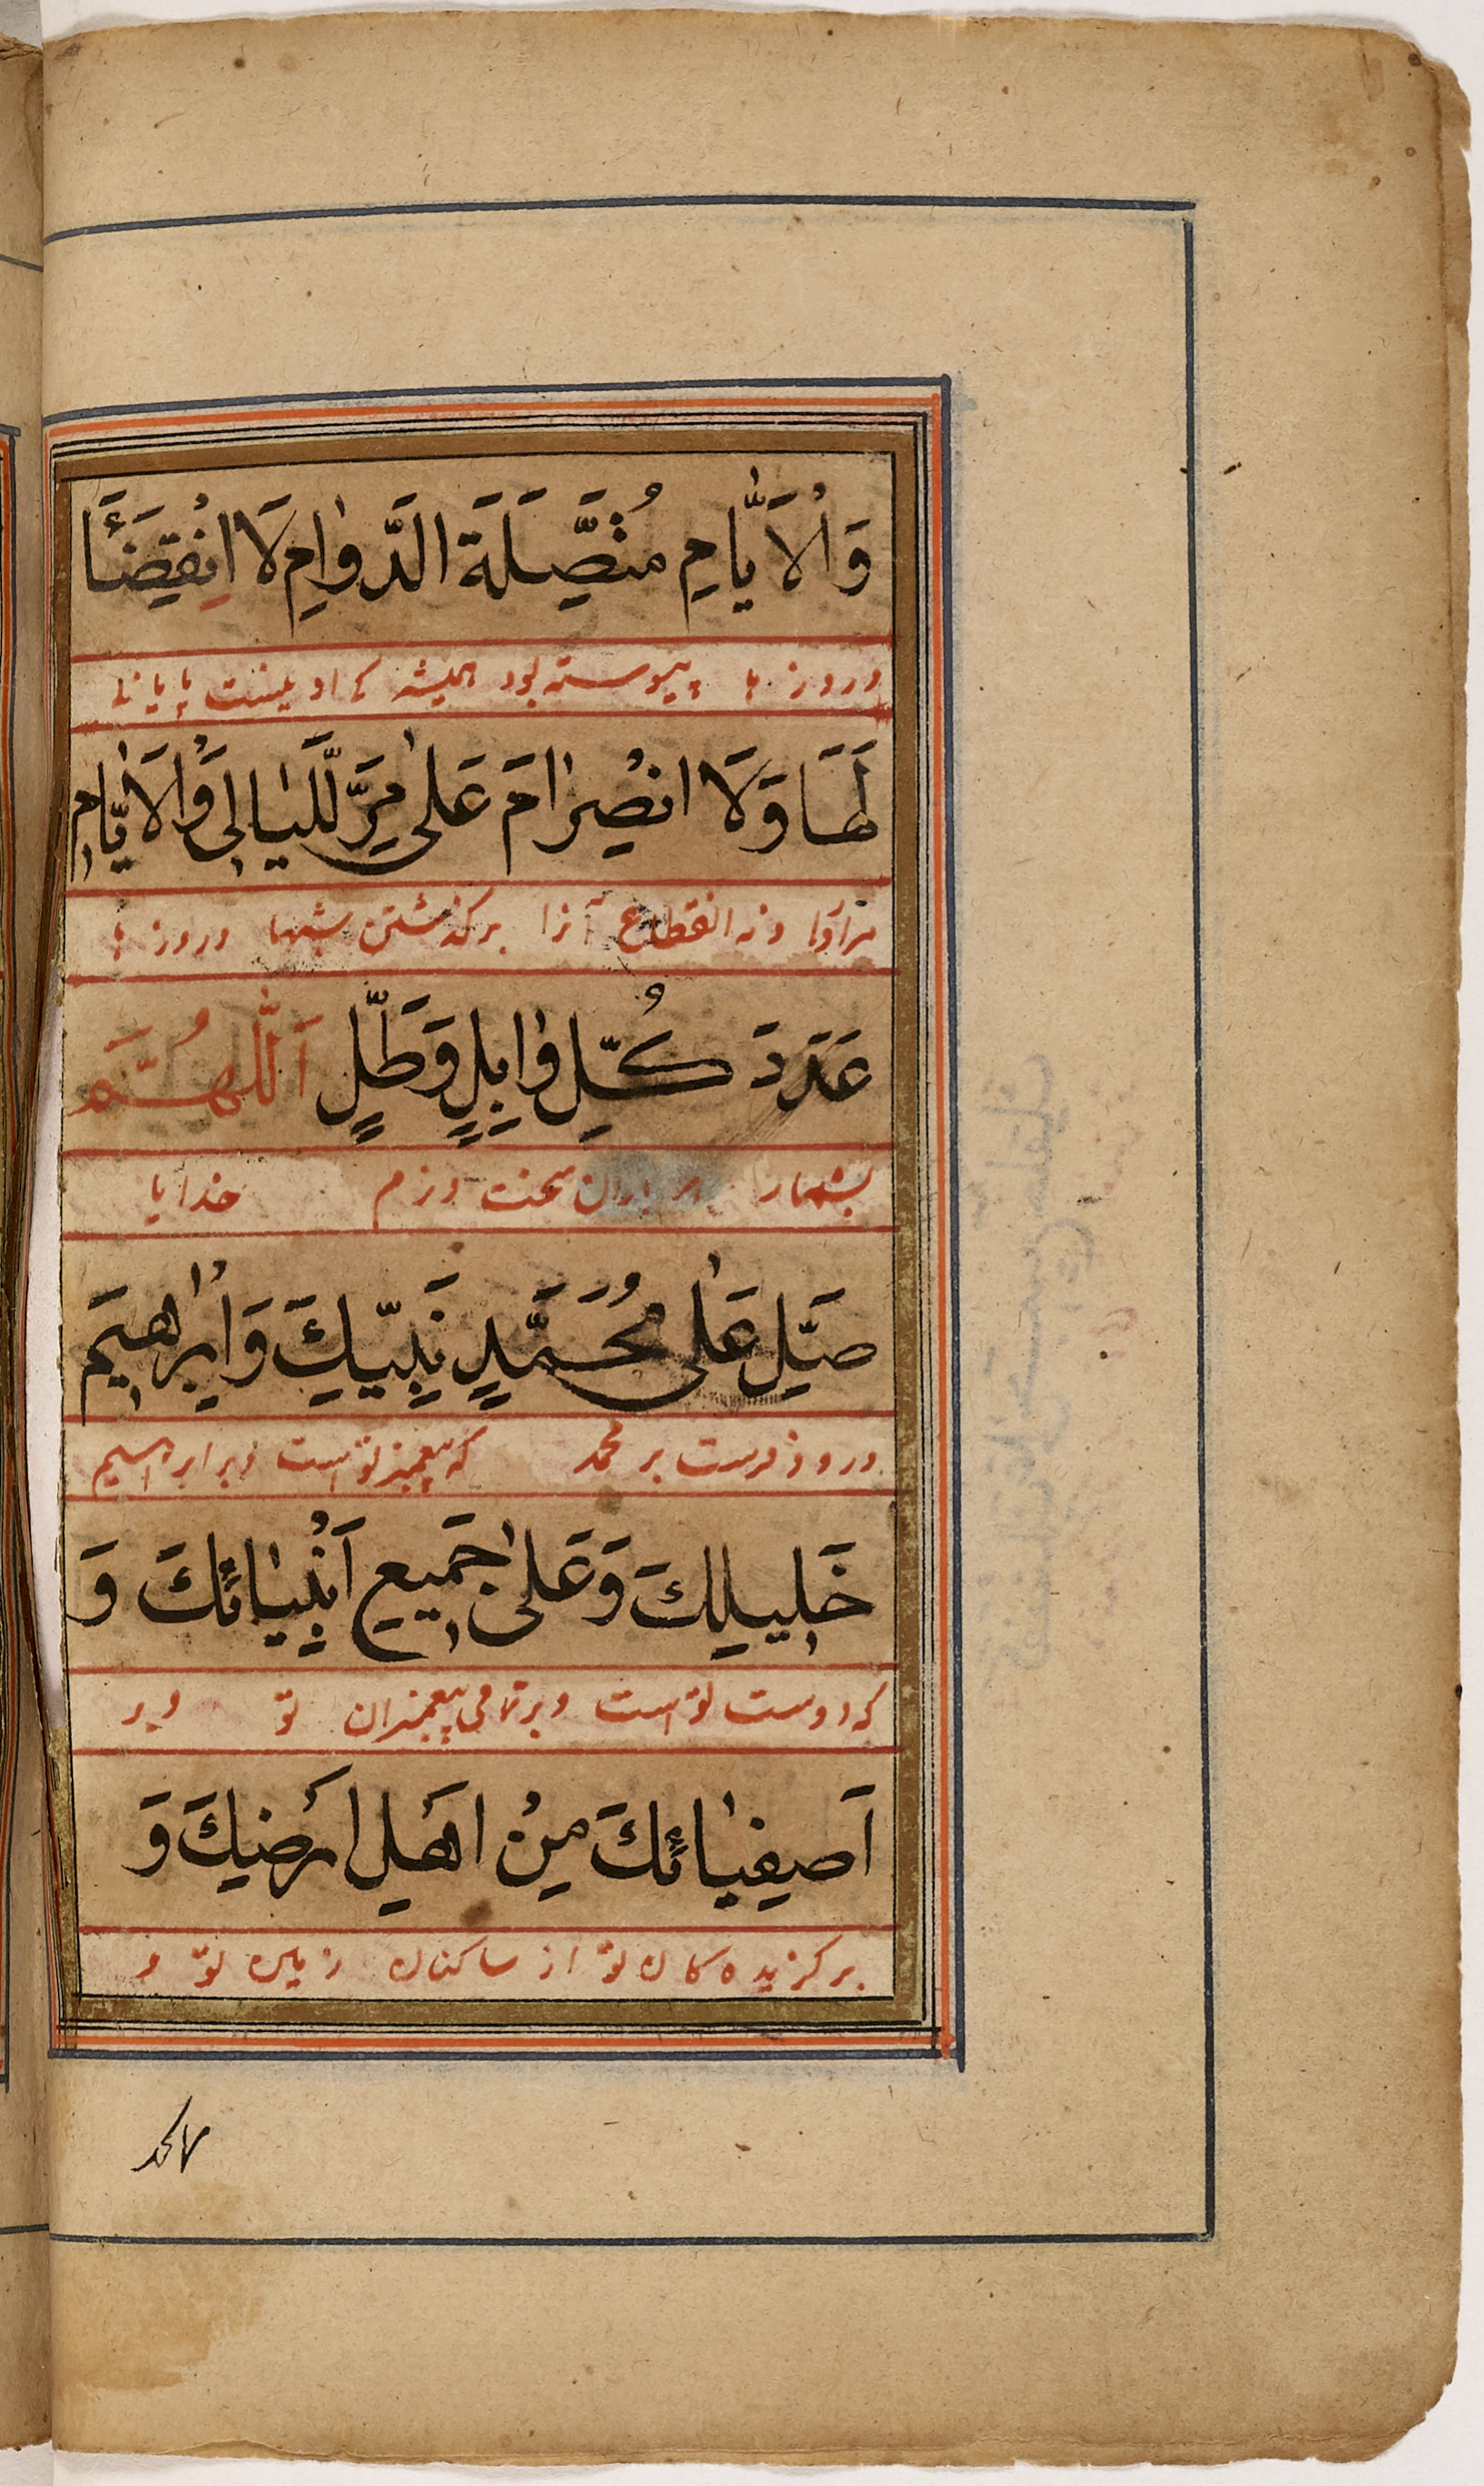 وَالْاَيَّامِ مُتَّصِلَةَ الدَّوَامِ لَا انْقِضَآءَ
و روز ها پیوسته بود همیشه که او نیست پایانی
لَهَا وَلَا انْصِرَامَ عَلٰى مَرِّ اللَّيَالِى وَالْاَيَّامِ
مر اورا و نه انقطاع آنرا بر گذشتن شبها و روز ها
عَدَدَ كُلِّ وَابِلٍ وَطَلٍّ اَللّٰهُمَّ
بشمار هر باران سخت و نرم خدایا
صَلِّ عَلٰى مُحَمَّدٍ نَبِيِّكَ وَاِبْرٰهِيمَ
درود فرست بر محمد که پیغمبر تو است و بر ابراهیم
خَلِيلِكَ وَعَلٰى جَمِيعِ اَنْبِيَائِكَ وَ
که دوست تو است و بر تمامی پیغمبران تو و بر
اَصْفِيَائِكَ مِنْ اَهْلِ اَرْضِكَ وَ
برگزیده کان تو از ساکنان زمین تو و